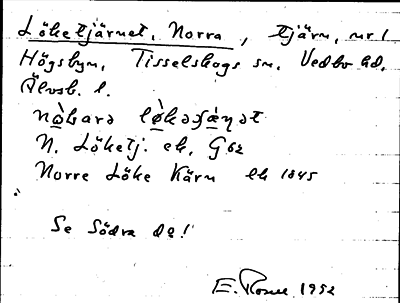 Löketjärnet, Norra, tjärn, nr 1
Högsbyn, Tisselskogs sn. Vedbo hd.
Älvsb. l.
N. Löketj. ek, G 62
Norre Löke Kärn lk 1845
Se Södra d:o!
E. 1952